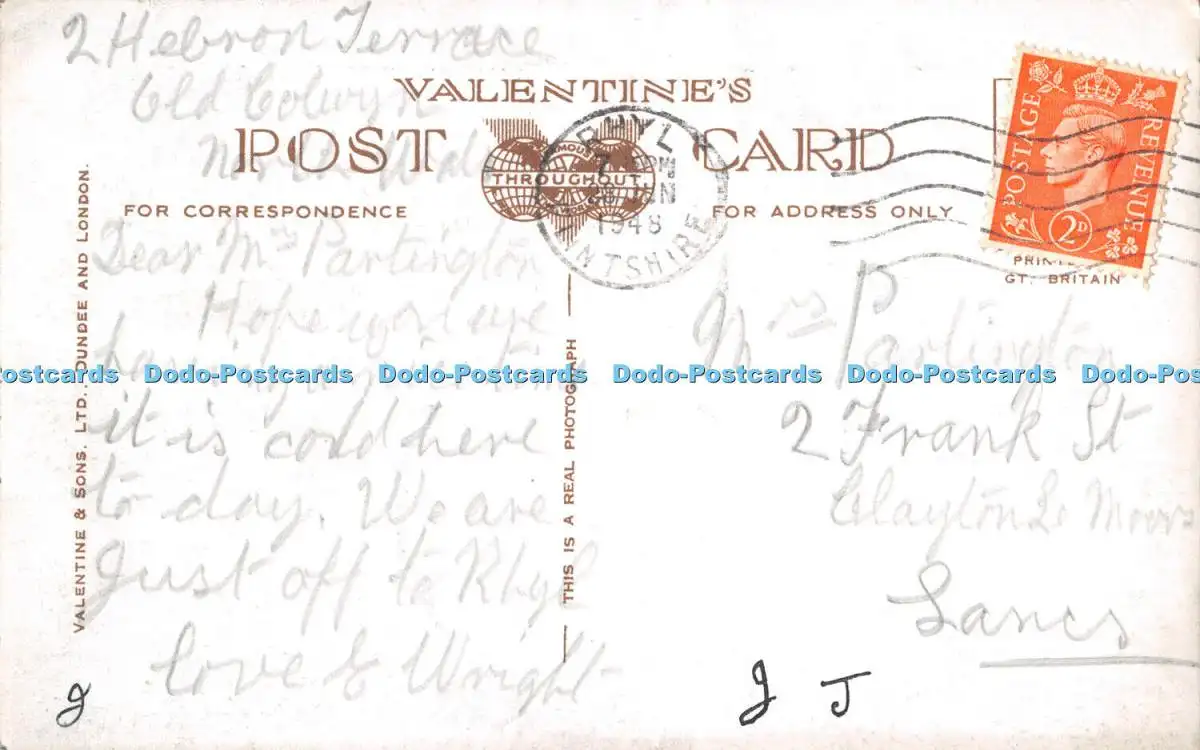 2 Hebron Terrace
Old Colwyn
North Wales
VALENTINE'S
POST CARD
FAMOUS
THROUGHOUT
FOR CORRESPONDENCE
FOR ADDRESS ONLY
RHYL
PM
JUN
1948
FLINTSHIRE
POSTAGE
REVENUE
2D
PRINTED
GT. BRITAIN
Dear Mrs Partington
Hope you are
it is cold here
to day. We are
Just off to Rhyl
love E Wright
Mrs Partington
2 Frank St
Clayton Le Moors
Lancs
VALENTINE & SONS. LTD. DUNDEE AND LONDON.
THIS IS A REAL PHOTOGRAPH
ostcards Dodo-Postcards Dodo-Postcards Dodo-Postcards Dodo-Postcards Dodo-Pos
J
J J